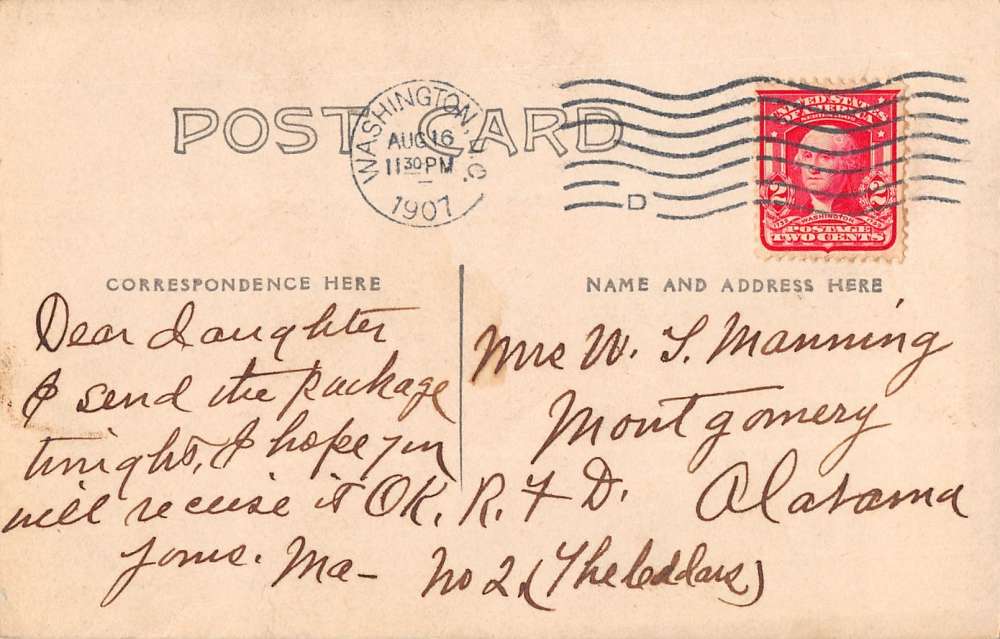 POST CARD
WASHINGTON, D.C.
AUG 16
11 30 PM
1907
D
UNITED STATES
OF AMERICA
SERIES 1902
2 2
1732 WASHINGTON 1799
POSTAGE
TWO CENTS
CORRESPONDENCE HERE
NAME AND ADDRESS HERE
Dear daughter
I send the package
tonight, I hope you
will receive it OK.
Yours. Ma-
Mrs W. S. Manning
Montgomery
R. F D. Alabama
No 2. (The Ceddars)